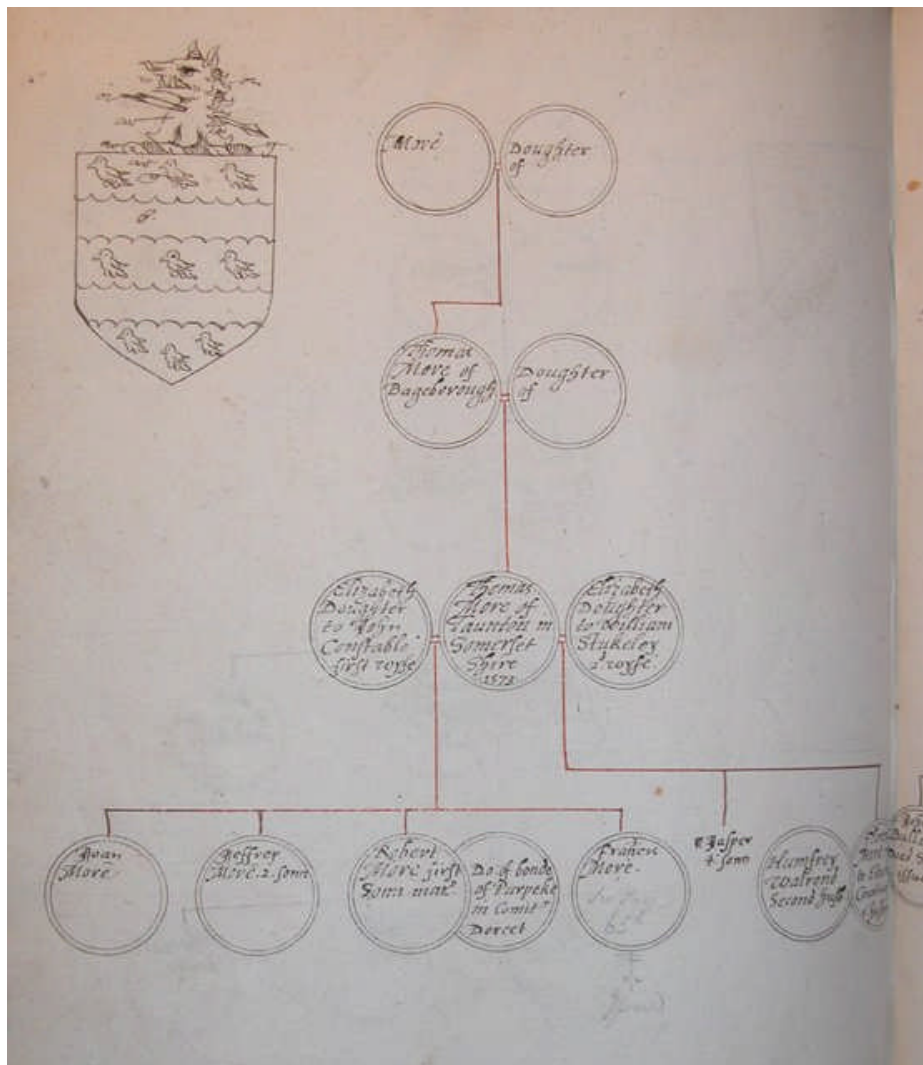 More
Doughter
of
Thomas
More of
Bageborough
Doughter
of
Elizabeth
Doughter
to John
Constable
first wyfe
Thomas
More of
Taunton in
Somerset
Shire
1573
Elizabeth
Doughter
to William
Stukeley
2 wyfe
Joan
More
Jeffrey
More. 2. sonn
Robert
More first
Sonn
Do of bonde
of Purpeke
in Comit
Dorcet
Francis
More.
Jasper
4 sonn
Humfrey
Walrond
Second